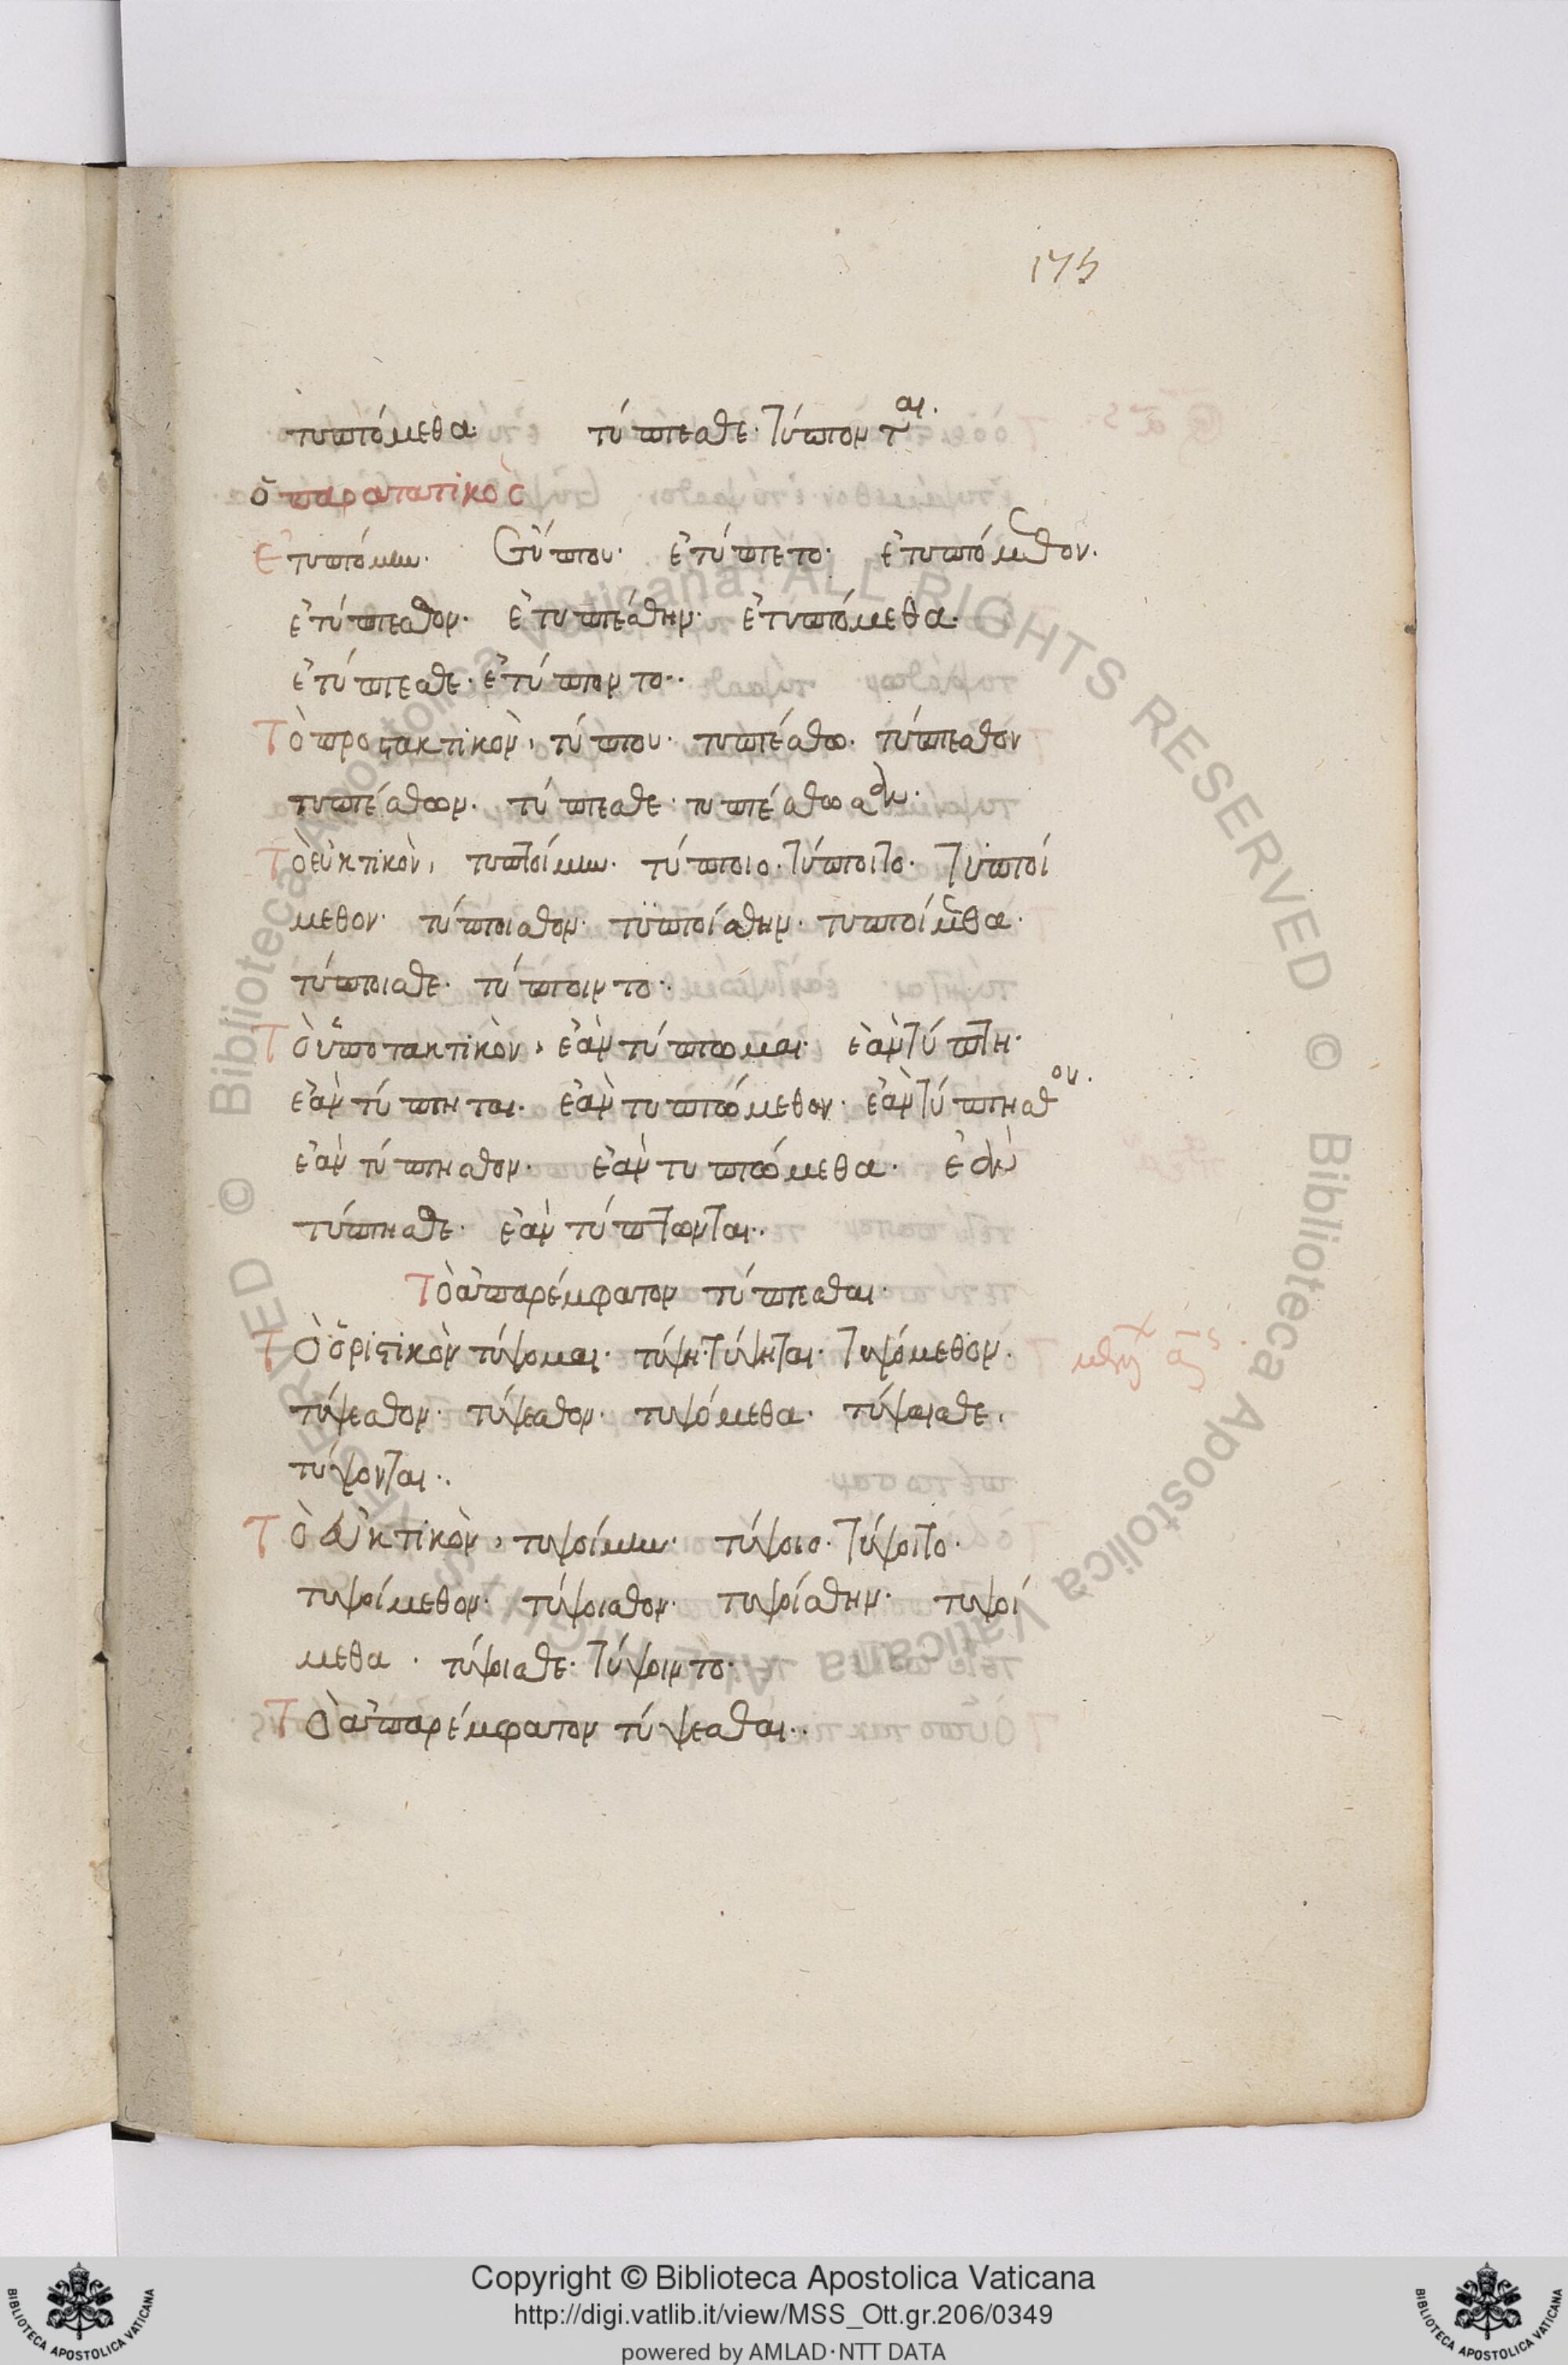 175
τυπτόμεθα τύπτεσθε· τύπτονται·
ὁ παρατατικὸς
Ἐτυπτόμην· ἐτύπτου· ἐτύπτετο· ἐτυπτόμεθον·
ἐτύπτεσθον· ἐτυπτέσθην· ἐτυπτόμεθα·
ἐτύπτεσθε· ἐτύπτοντο··
Τὸ προστακτικὸν, τύπτου· τυπτέσθω· τύπτεσθον
τυπτέσθων· τύπτεσθε· τυπτέσθωσαν·
Τὸ εὐκτικὸν, τυπτοίμην· τύπτοιο· τύπτοιτο· τυπτοί
μεθον· τύπτοισθον· τυπτοίσθην· τυπτοίμεθα·
τύπτοισθε· τύπτοιντο··
Τὸ ὑποτακτικὸν, ἐὰν τύπτωμαι· ἐὰν τύπτη·
ἐὰν τύπτηται· ἐὰν τυπτώμεθον· ἐὰν τύπτησθον·
ἐὰν τύπτησθον· ἐὰν τυπτώμεθα· ἐὰν
τύπτησθε· ἐὰν τύπτωνται··
Τὸ ἀπαρέμφατον τύπτεσθαι·
Τὸ ὁριστικὸν τύψομαι· τύψη· τύψηται· τυψόμεθον·
τύψεσθον· τύψεσθον· τυψόμεθα· τύψαισθε,
τύψονται··
Τὸ εὐκτικὸν, τυψοίμην· τύψοιο· τύψοιτο·
τυψοίμεθον· τύψοισθον· τυψοίσθην· τυψοί
μεθα· τύψοισθε· τύψοιντο·
Τὸ ἀπαρέμφατον τύψεσθαι··
Copyright © Biblioteca Apostolica Vaticana
http://digi.vatlib.it/view/MSS_Ott.gr.206/0349
powered by AMLAD·NTT DATA
BIBLIOTECA APOSTOLICA VATICANA
BIBLIOTECA APOSTOLICA VATICANA
© Biblioteca Apostolica Vaticana ALL RIGHTS RESERVED © Biblioteca Apostolica Vaticana ALL RIGHTS RESERVED